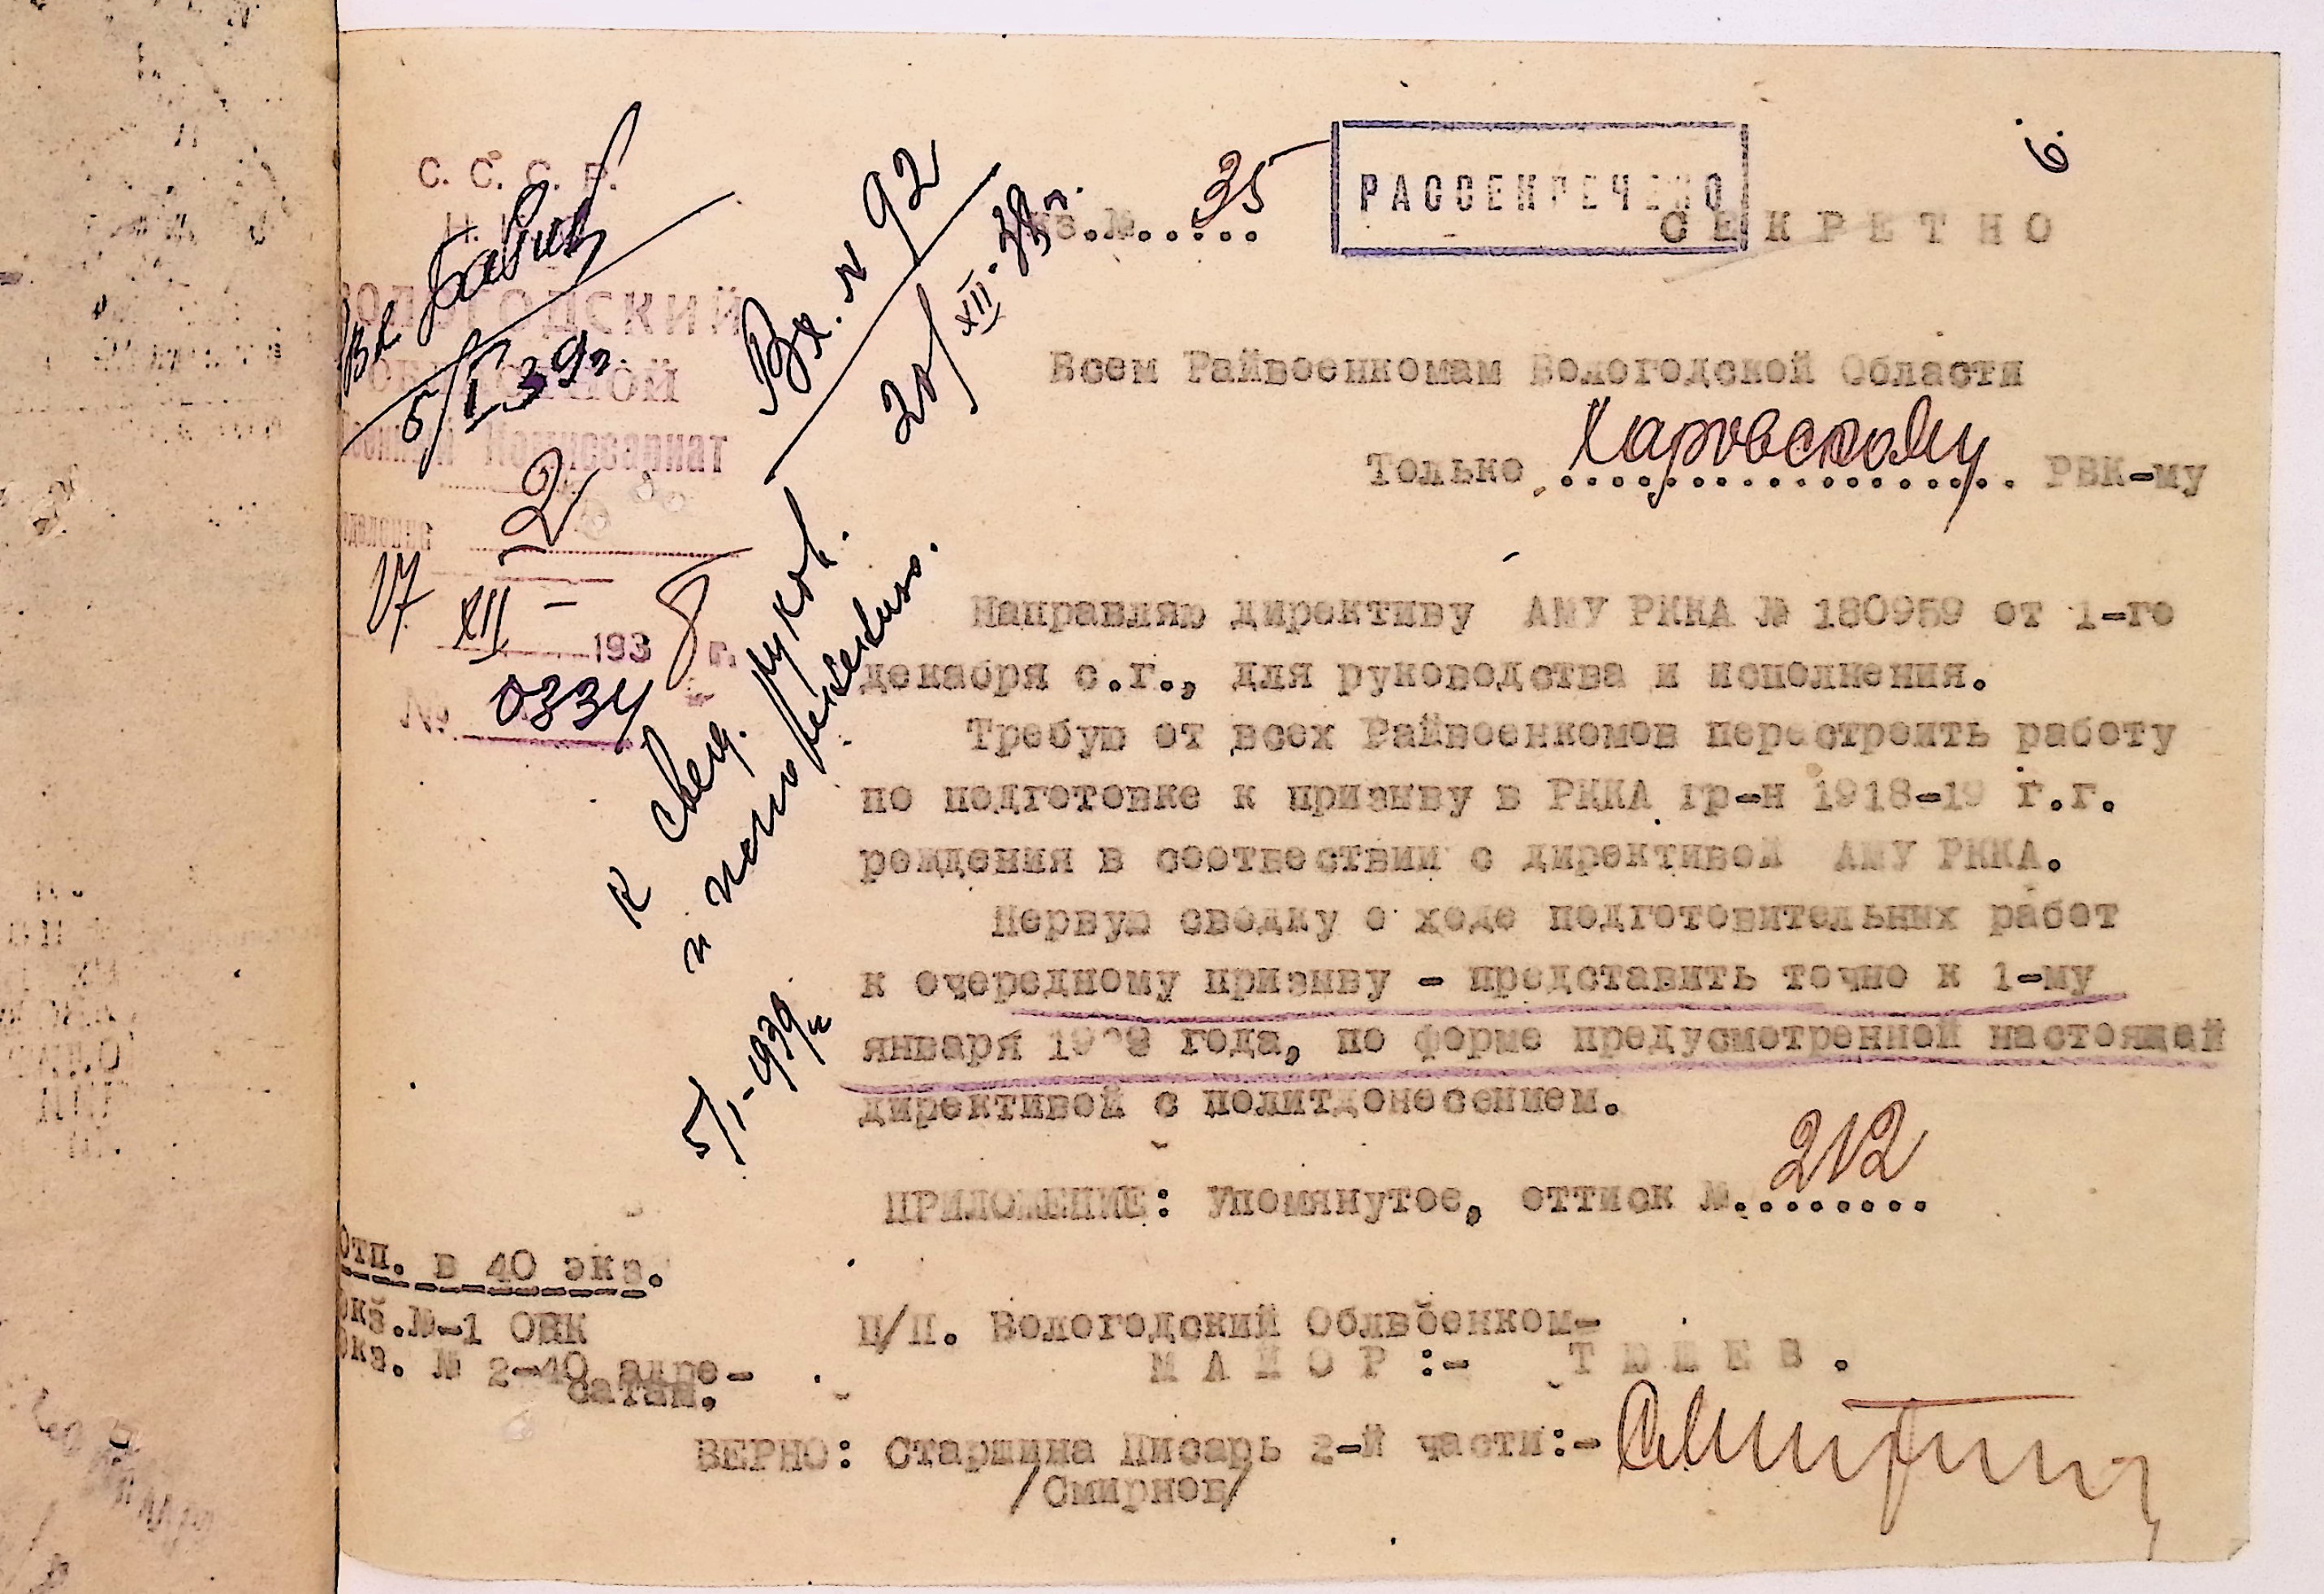 С. С. С. Р.
ВОЛОГОДСКИЙ
ОБЛАСТНОЙ
Военный Комиссариат
2
17 XII – 1938 г.
№ 0334
5/I 39г.
Вх. № 92
20/XII-38г.
экз.№..... 35
РАССЕКРЕЧЕНО
6.
СЕКРЕТНО
Всем Райвоенкомам Вологодской Области
Только Харовскому РВК-му
К свед. руков.
и исполнению.
5/I-1939г.
Направляю директиву АМУ РККА № 180959 от 1-го
декабря с.г., для руководства и исполнения.
Требую от всех Райвоенкомов перестроить работу
по подготовке к призыву в РККА гр-н 1918-19 г.г.
рождения в соотвествии с директивой АМУ РККА.
Первую сводку о ходе подготовительных работ
к очередному призыву - представить точно к 1-му
января года, по форме предусмотренной настоящей
директивой с политдонесением.
ПРИЛОЖЕНИЕ: Упомянутое, оттиск №........ 212
Отп. в 40 экз.
Экз.№-1 ОВК
Экз. № 2-40 адре-
сатам.
П/П. Вологодский Облвоенком-
МАЙОР:-
ВЕРНО: Старшина Писарь 2-й части:-
/Смирнов/